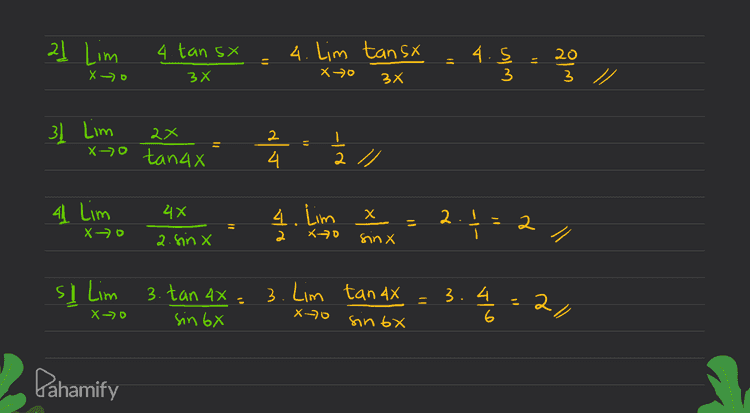 2] Lim x→0 4 tan 5x / 3x = 4 . Lim x→0 tan 5x / 3x = 4 . 5/3 = 20/3 //
3] Lim x→0 2x / tan 4x = 2/4 = 1/2 //
4] Lim x→0 4x / 2 . sin x = 4/2 . Lim x→0 x / sin x = 2 . 1/1 = 2 //
5] Lim x→0 3 . tan 4x / sin 6x = 3 . Lim x→0 tan 4x / sin 6x = 3 . 4/6 = 2 //
Pahamify